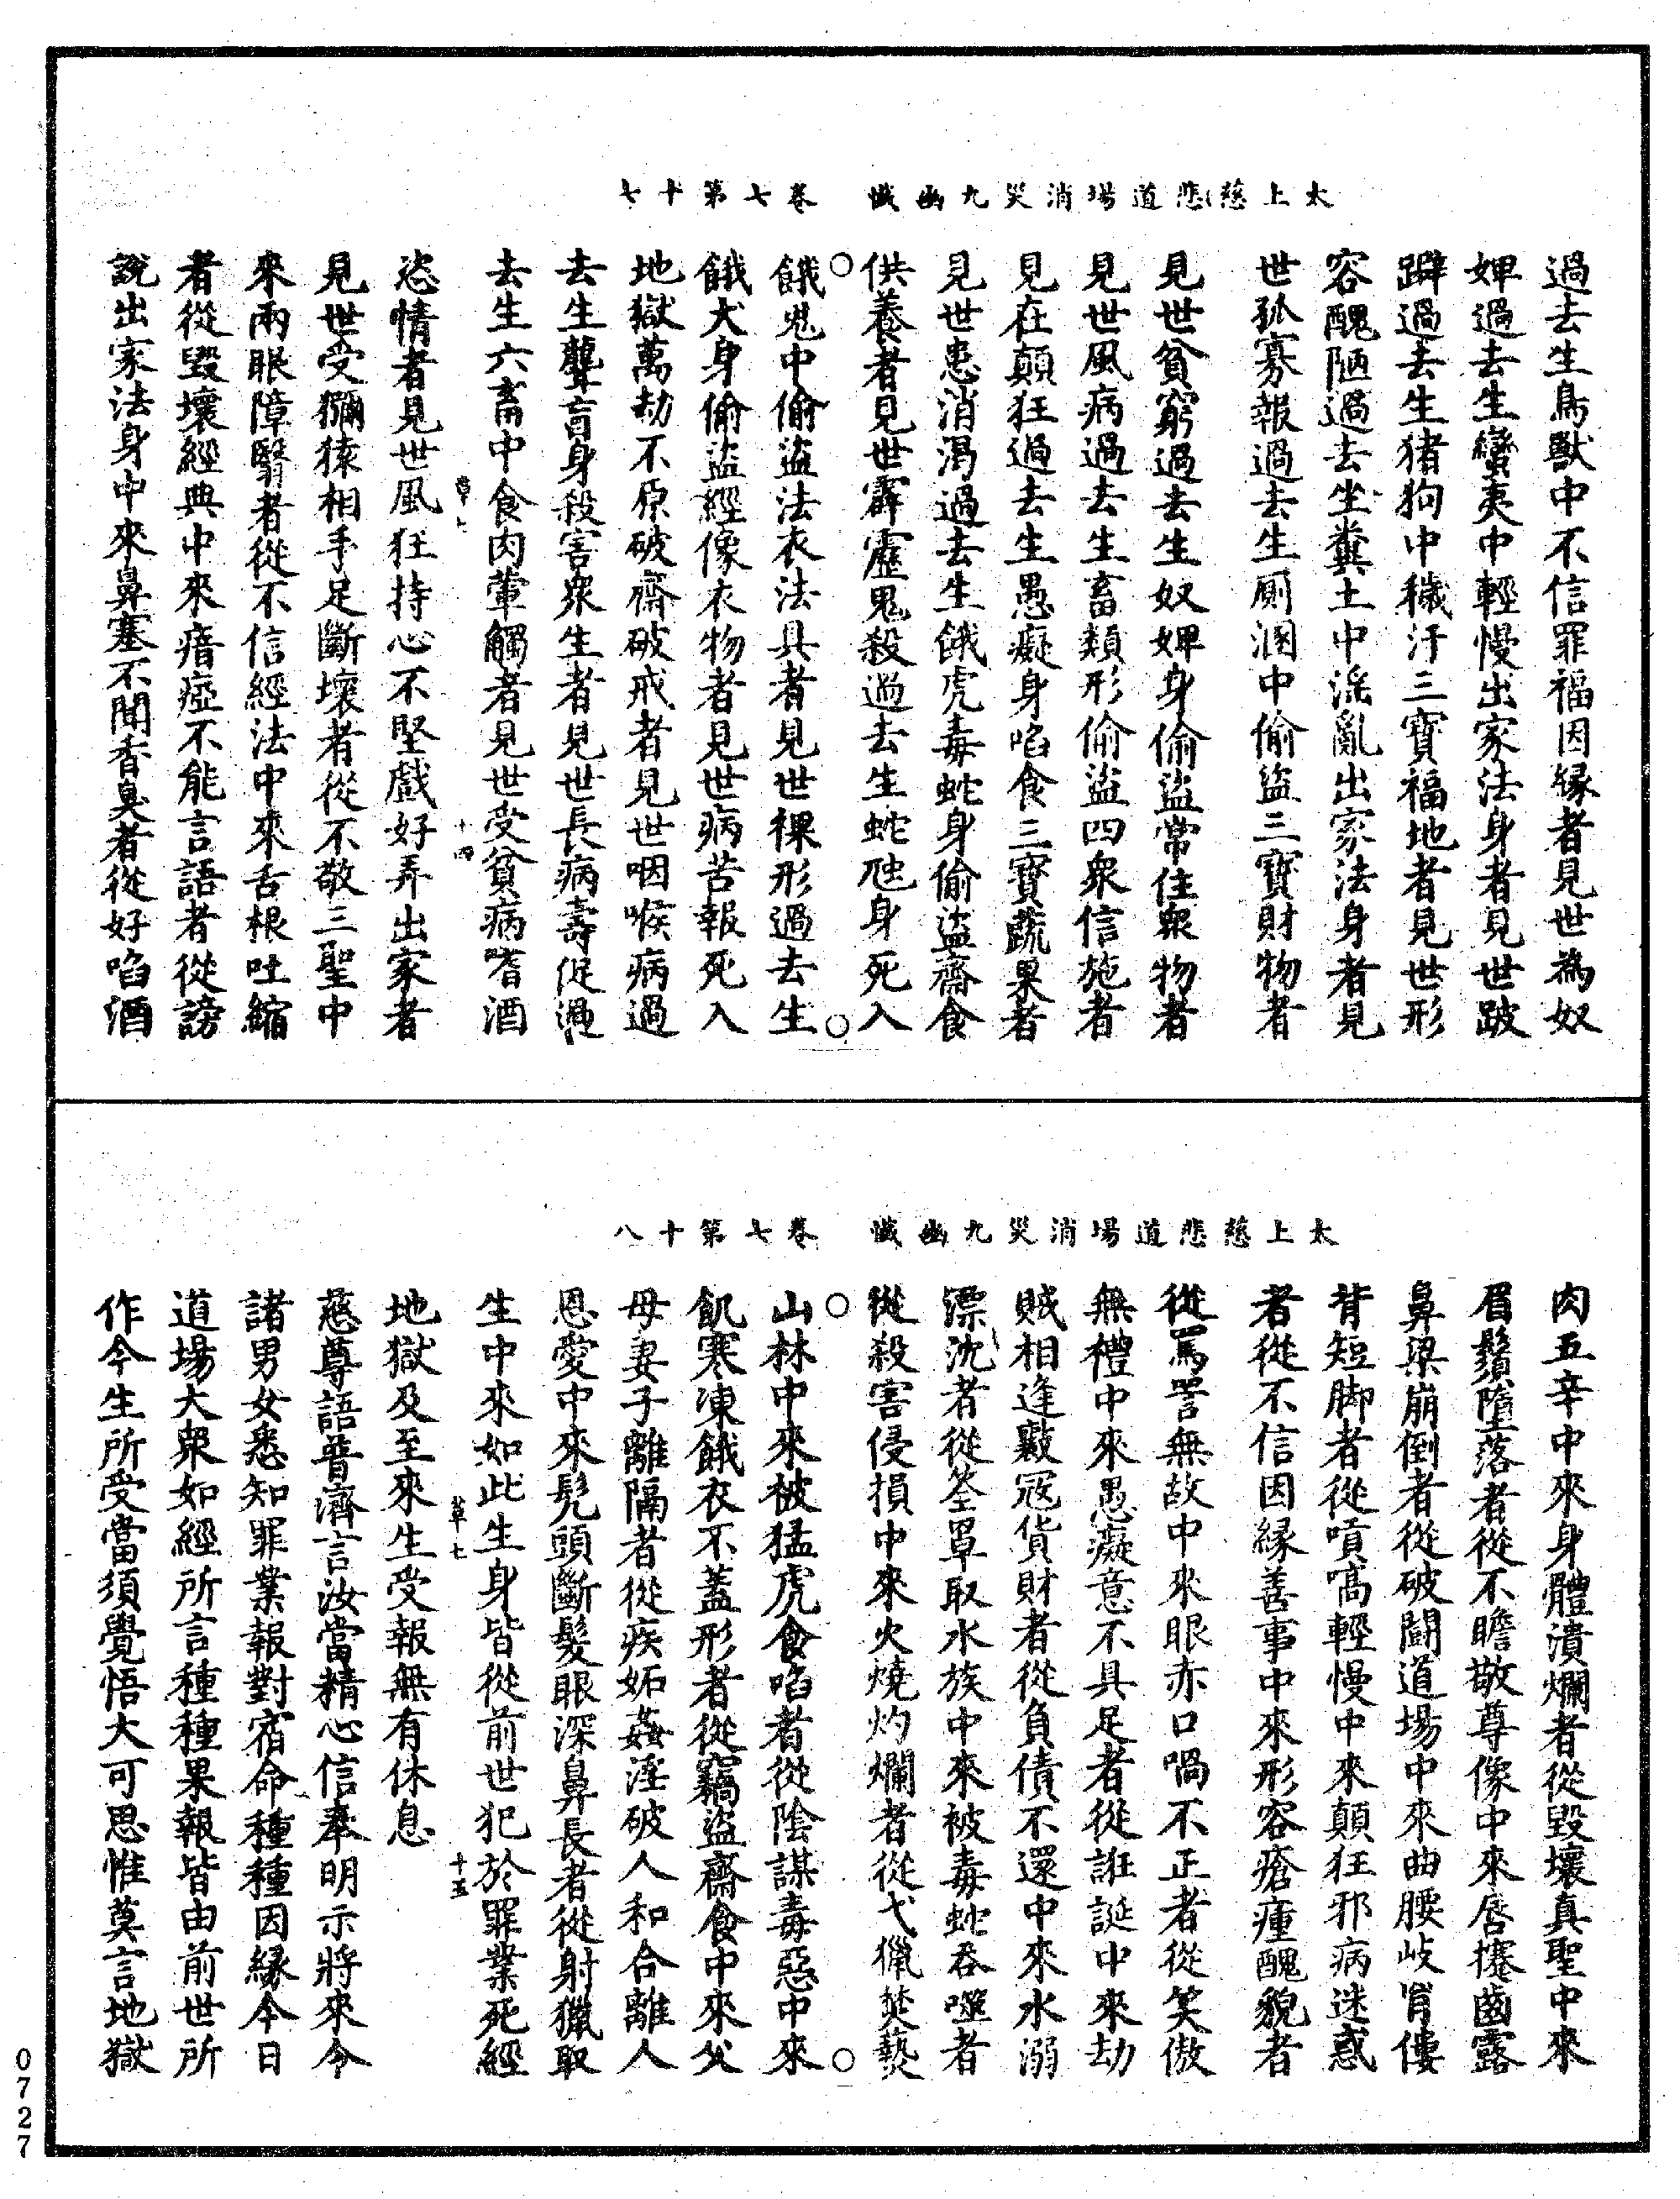 太上慈悲道場消災九幽懺　卷七第十七
過去生鳥獸中不信罪福因縁者見世為奴
婢過去生蠻夷中輕慢出家法身者見世跛
躃過去生猪狗中穢汙三寶福地者見世形
容醜陋過去坐糞土中滛亂出家法身者見
世孤寡報過去生厠溷中偷盜三寶財物者
見世貧窮過去生奴婢身偷盜常住眾物者
見世風病過去生畜類形偷盜四眾信施者
見在顛狂過去生愚癡身啗食三寶蔬果者
見世患消渴過去生餓虎毒蛇身偷盜齋食
供養者見世霹靂鬼殺過去生蛇虺身死入
餓鬼中偷盜法衣法具者見世裸形過去生
餓犬身偷盜經像衣物者見世病苦報死入
地獄萬劫不原破齋破戒者見世咽喉病過
去生聾盲身殺害衆生者見世長病壽促過
去生六畜中食肉葷觸者見世受貧病嗜酒
草七　十四
恣情者見世風狂持心不堅戲好弄出家者
見世受獼猿相手足斷壞者從不敬三聖中
來兩眼障翳者從不信經法中來舌根吐縮
者從毀壞經典中來瘖瘂不能言語者從謗
說出家法身中來鼻塞不聞香臭者從好啗酒
太上慈悲道場消災九幽懺　卷七第十八
肉五辛中來身體潰爛者從毀壞真聖中來
眉鬚墮落者從不瞻敬尊像中來唇搴齒露
鼻梁崩倒者從破鬭道場中來曲腰岐肎僂
背短脚者從嗔高輕慢中來顛狂邪病迷惑
者從不信因縁善事中來形容瘡瘇醜貌者
從罵詈無故中來眼赤口喎不正者從笑傲
無禮中來愚癡意不具足者從誑誕中來劫
賊相逢歐冦貨財者從負債不還中來水溺
漂沈者從筌罩取水族中來被毒蛇吞噬者
從殺害侵損中來火燒灼爛者從弋獵焚爇
山林中來被猛虎食啗者從陰謀毒惡中來
飢寒凍餓衣不蓋形者從竊盜齋食中來父
母妻子離隔者從疾妬姦淫破人和合離人
恩愛中來髡頭斷髮眼深鼻長者從射獵取
生中來如此生身皆從前世犯於罪業死經
草七　十五
地獄及至來生受報無有休息
慈尊語普濟言汝當精心信奉明示將來令
諸男女悉知罪業報對宿命種種因縁今日
道場大眾如經所言種種果報皆由前世所
作今生所受當須覺悟大可思惟莫言地獄
0727